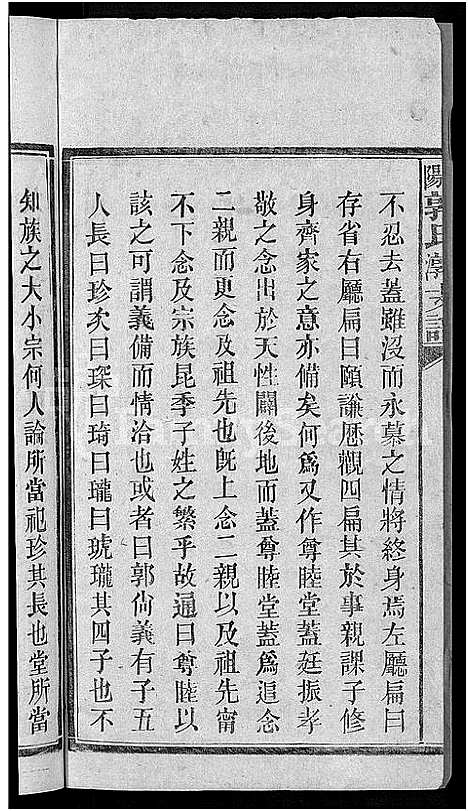 不忍去蓋雖沒而永慕之情將終身焉左廳扁曰
存省右廳扁曰頤謙歴觀四扁其於事親課子修
身齊家之意亦備矣何爲又作尊睦堂蓋廷振孝
敬之念出於天性闢後地而蓋尊睦堂蓋爲追念
二親而更念及祖先也旣上念二親以及祖先甯
不下念及宗族昆季子姓之繁乎故通曰尊睦以
該之可謂義備而情洽也或者曰郭尙義有子五
人長曰珍次曰琛曰琦曰瓏曰琥瓏其四子也不
知族之大小宗何人論所當祀珍其長也堂所當